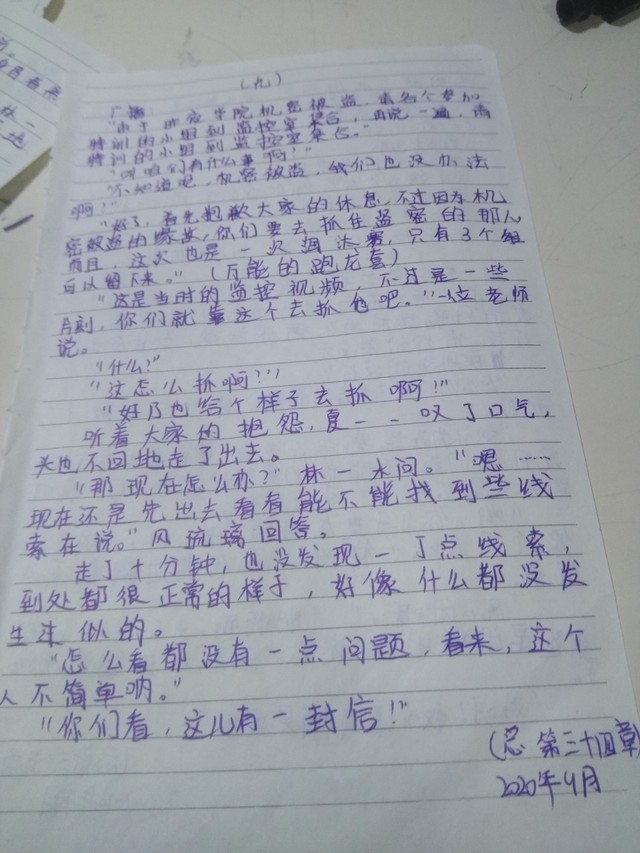 (九)
广播
"由于昨夜学院机密被盗,请各个参加
特训的小组到监控室集合,再说一遍,请
特训的小组到监控室集合。"
"叫咱们有什么事啊?"
"不知道吧,机密被盗,我们也没办法
啊!"
"好了,首先抱歉大家的休息,不过因为机
密被盗的缘故,你们要去抓住盗密的那人
而且,这次也是一次淘汰赛,只有3个组
可以留下来。"(万能的跑龙套)
"这是当时的监控视频,不过是一些
片刻,你们就靠这个去抓他吧。"一位老师
说。
"什么?"
"这怎么抓啊?!"
"好歹也给个样子去抓啊!"
听着大家的抱怨,夏一一叹了口气,
头也不回地走了出去。
"那现在怎么办?"林一水问。"嗯……
现在还是先出去看看能不能找到些线
索在说。"风琉璃回答。
走了十分钟,也没发现一丁点线索,
到处都很正常的样子,好像什么都没发
生过似的。
"怎么看都没有一点问题,看来,这个
人不简单呐。"
"你们看,这儿有一封信!"
(总第三十四章)
2020年4月
林一
地